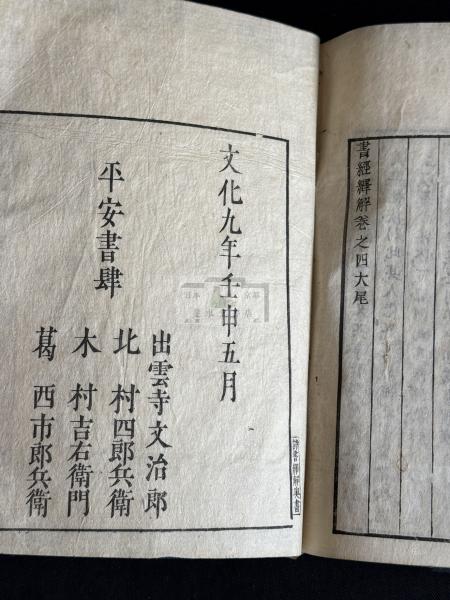 書經繹解卷之四大尾
文化九年壬申五月
平安書肆
出雲寺文治郎
北村四郎兵衛
木村吉右衛門
葛西市郎兵衛